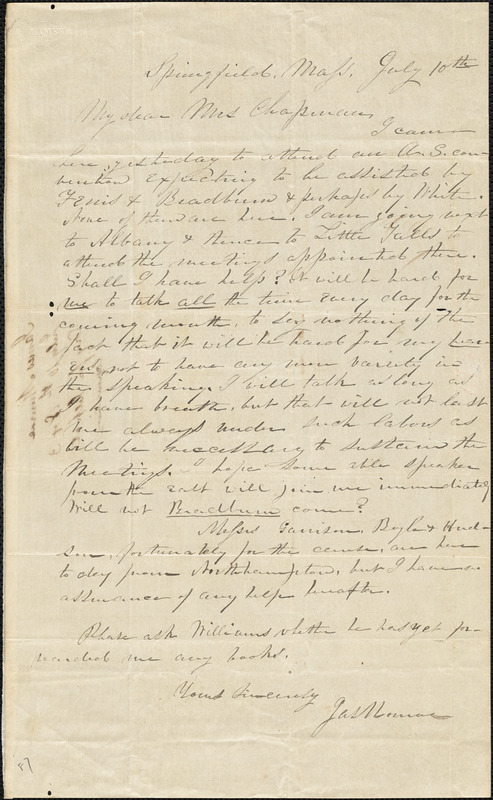 Springfield, Mass. July 10th
My dear Mrs Chapman,
I came
here yesterday to attend an A. S. con-
vention expecting to be assisted by
Ferris & Bradburn & perhaps by White.
None of them are here. I am going next
to Albany & thence to Little Falls to
attend the meetings appointed there.
Shall I have help? It will be hard for
me to talk all the time every day for the
coming month, to say nothing of the
fact that it will be hard for my hear-
ers not to have any more variety in
the speaking. I will talk as long as
I have breath, but that will not last
me always under such labors as
will be necessary to sustain the
meetings. I hope some able speaker
from the east will join me immediately
Will not Bradburn come?
Messrs Garrison, Boyle & Hud-
son, fortunately for the cause, are here
to day from Northhampton, but I have no
assurance of any help hereafter.
Please ask Williams whether he has yet for-
warded me any books.
Yours Sincerely
Jas Monroe